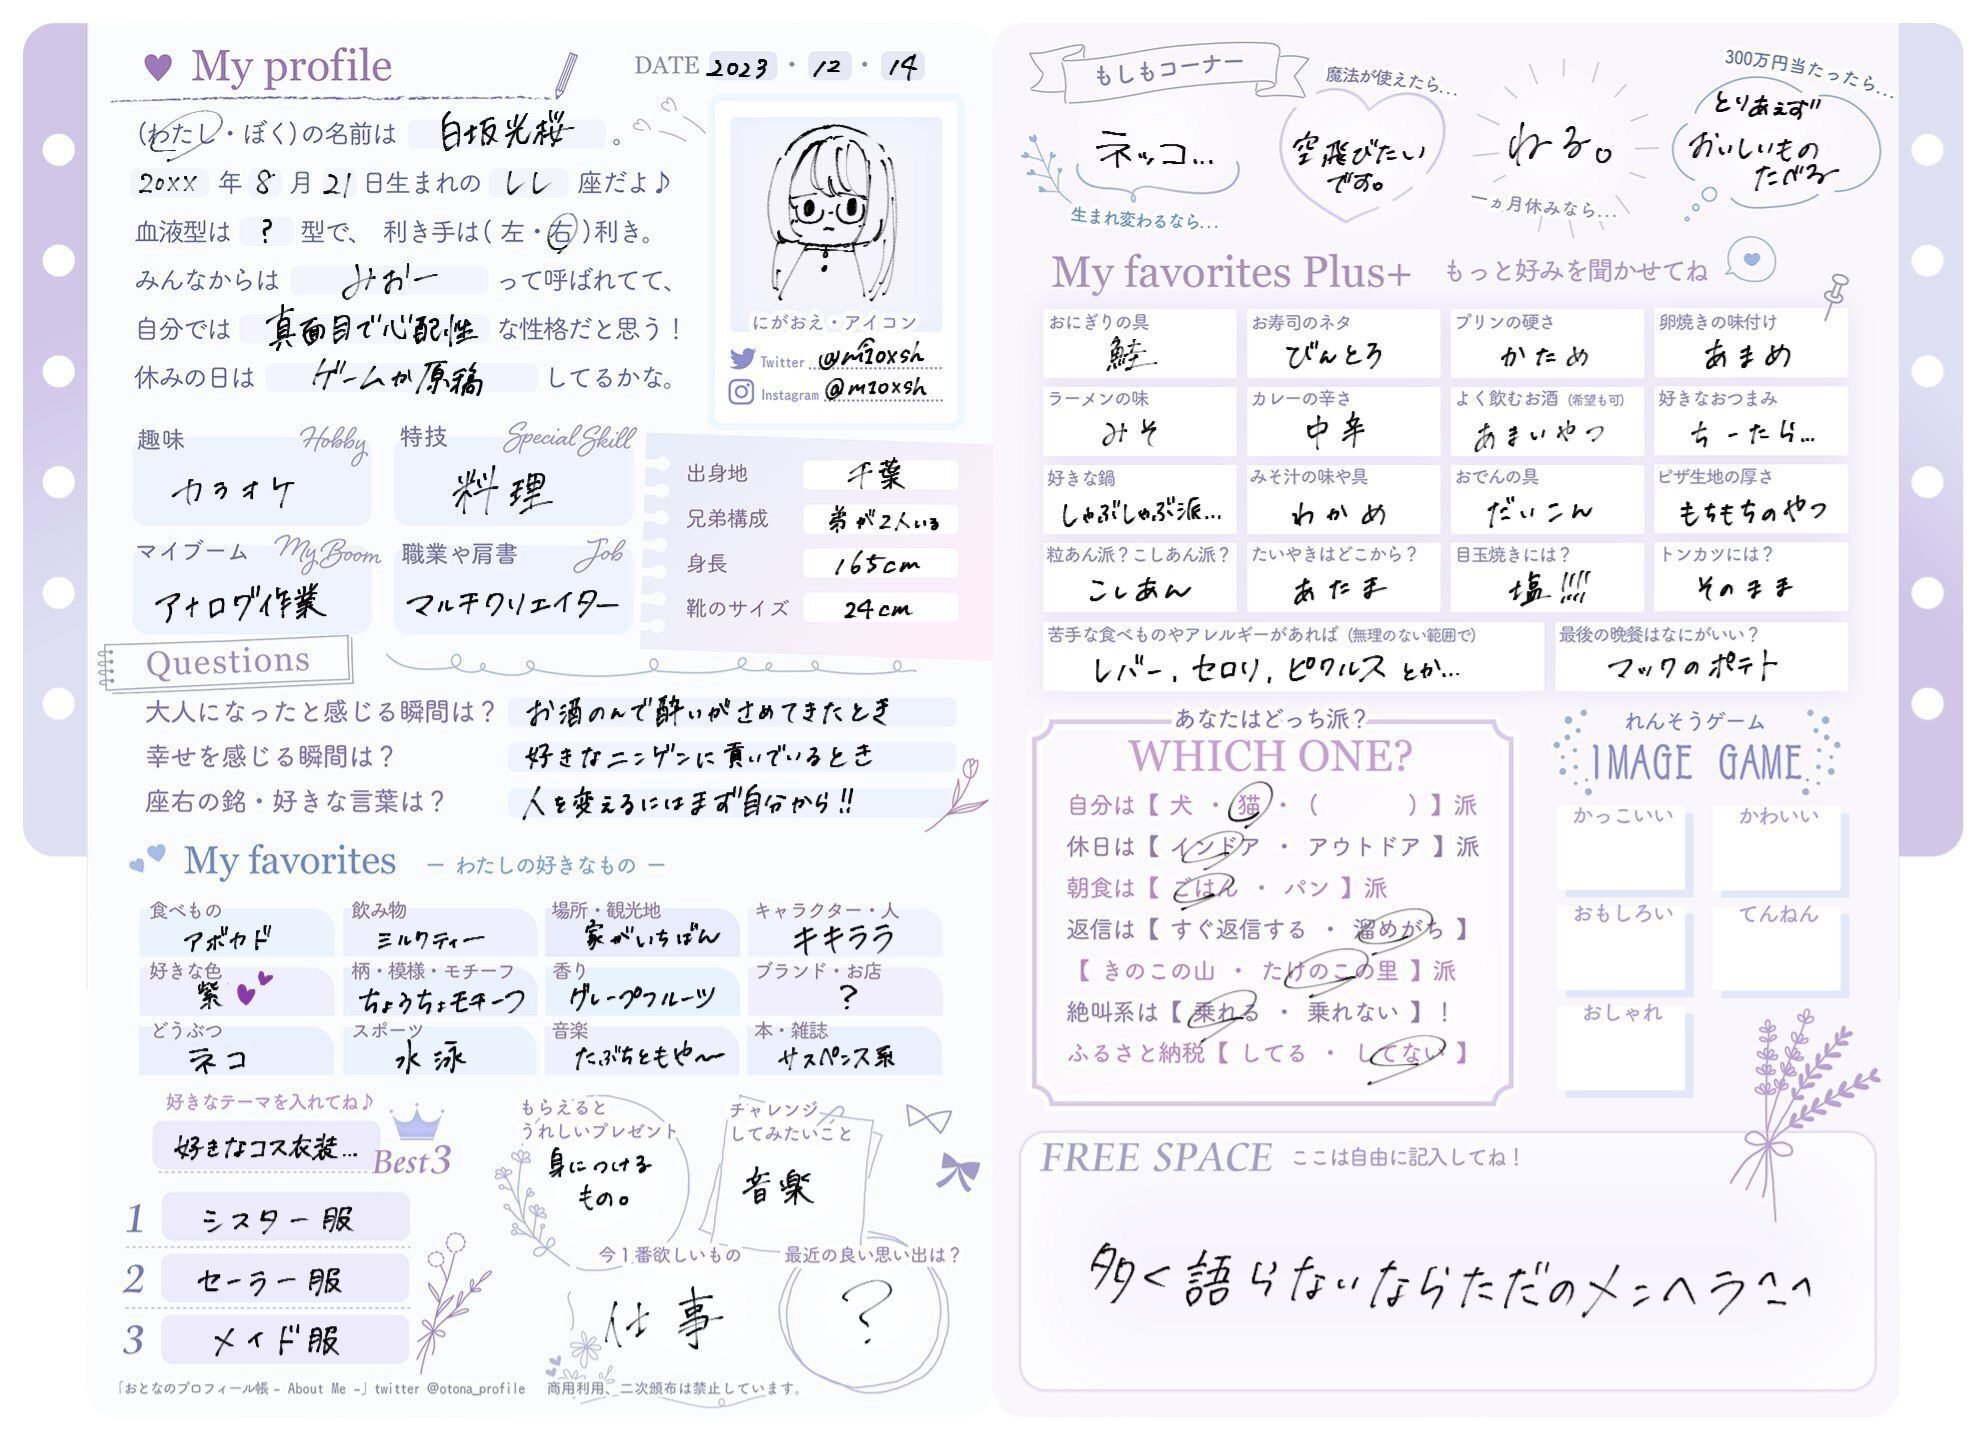 My profile
DATE 2023 ・ 12 ・ 14
(わたし・ぼく)の名前は 白坂光桜 。
20XX 年 8 月 21 日生まれの しし 座だよ♪
血液型は ? 型で、 利き手は( 左・右 )利き。
みんなからは みおー って呼ばれてて、
自分では 真面目で心配性 な性格だと思う！
休みの日は ゲームか原稿 してるかな。
にがおえ・アイコン
Twitter @m10xsh
Instagram @m10xsh
趣味 Hobby
カラオケ
特技 Special Skill
料理
マイブーム My Boom
アナログ作業
職業や肩書 Job
マルチクリエイター
出身地 千葉
兄弟構成 弟が2人いる
身長 165cm
靴のサイズ 24cm
Questions
大人になったと感じる瞬間は？ お酒のんで酔いがさめてきたとき
幸せを感じる瞬間は？ 好きなニンゲンに貢いでいるとき
座右の銘・好きな言葉は？ 人を変えるにはまず自分から!!
My favorites — わたしの好きなもの —
食べもの
アボカド
飲み物
ミルクティー
場所・観光地
家がいちばん
キャラクター・人
キキララ
好きな色
紫
柄・模様・モチーフ
ちょうちょモチーフ
香り
グレープフルーツ
ブランド・お店
?
どうぶつ
ネコ
スポーツ
水泳
音楽
たぶちともや〜
本・雑誌
サスペンス系
好きなテーマを入れてね♪
好きなコス衣装...
Best3
1 シスター服
2 セーラー服
3 メイド服
もらえると
うれしいプレゼント
身につける
もの。
チャレンジ
してみたいこと
音楽
今１番欲しいもの
仕事
最近の良い思い出は？
?
「おとなのプロフィール帳 - About Me -」twitter @otona_profile 商用利用、二次頒布は禁止しています。
もしもコーナー
ネッコ...
生まれ変わるなら...
魔法が使えたら...
空飛びたい
です。
ねる。
一ヵ月休みなら...
300万円当たったら...
とりあえず
おいしいもの
たべる
My favorites Plus+ もっと好みを聞かせてね
おにぎりの具
鮭
お寿司のネタ
びんとろ
プリンの硬さ
かため
卵焼きの味付け
あまめ
ラーメンの味
みそ
カレーの辛さ
中辛
よく飲むお酒 (希望も可)
あまいやつ
好きなおつまみ
ちーたら...
好きな鍋
しゃぶしゃぶ派...
みそ汁の味や具
わかめ
おでんの具
だいこん
ピザ生地の厚さ
もちもちのやつ
粒あん派？こしあん派？
こしあん
たいやきはどこから？
あたま
目玉焼きには？
塩!!!!
トンカツには？
そのまま
苦手な食べものやアレルギーがあれば (無理のない範囲で)
レバー, セロリ, ピクルスとか...
最後の晩餐はなにがいい？
マックのポテト
あなたはどっち派？
WHICH ONE?
自分は【 犬 ・ 猫 ・ (　　　) 】派
休日は【 インドア ・ アウトドア 】派
朝食は【 ごはん ・ パン 】派
返信は【 すぐ返信する ・ 溜めがち 】
【 きのこの山 ・ たけのこの里 】派
絶叫系は【 乗れる ・ 乗れない 】！
ふるさと納税【 してる ・ してない 】
れんそうゲーム
IMAGE GAME
かっこいい
かわいい
おもしろい
てんねん
おしゃれ
FREE SPACE ここは自由に記入してね！
多く語らないならただのメンヘラ^_^